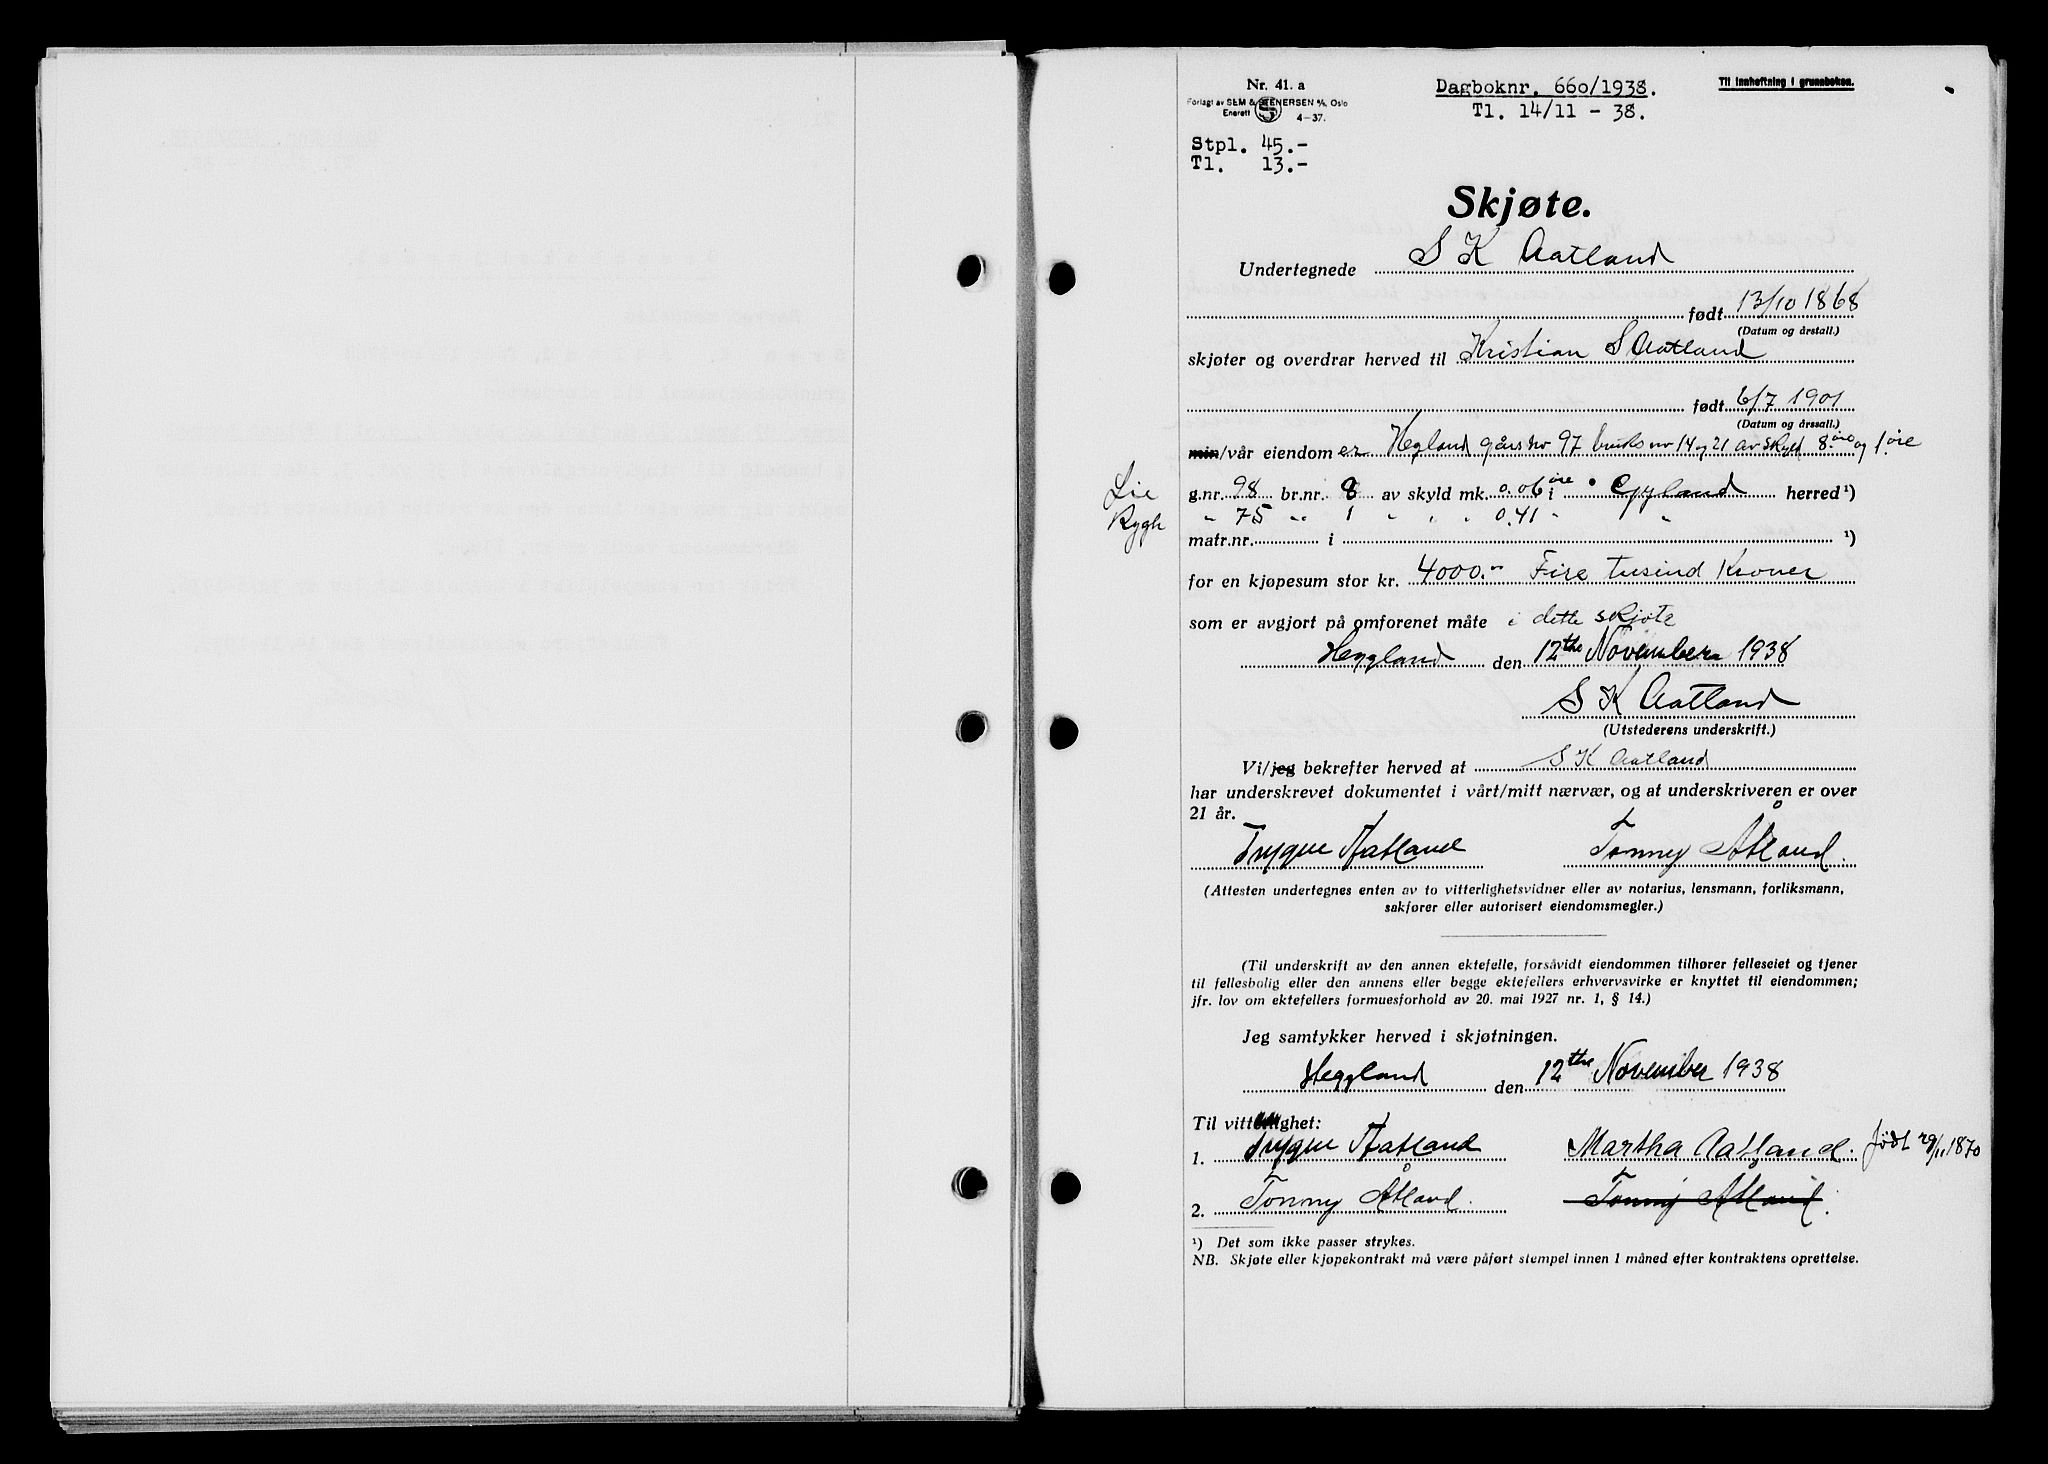 Nr. 41. a
Forlagt av SEM & STENERSEN A/S, Oslo
Enerett 4-37.
Dagboknr. 660/1938.
Tl. 14/11 - 38.
Til innheftning i grunnboken.
Stpl. 45.-
Tl. 13.-
Skjøte.
Undertegnede S K Aatland
født 13/10 1868
(Datum og årstall.)
skjøter og overdrar herved til Kristian S Aatland
født 6/7 1901
(Datum og årssall.)
min/vår eiendom er Hegland gårs nr 97 bruks nr 14 og 21 av skyld 8 øre og 1 øre
Lie
g.nr. 98 br.nr. 8 av skyld mk. 0.06 øre i Gyland herred ¹)
Rygh
" 75 " 1 " " " 0.41 " "
matr.nr. i ¹)
for en kjøpesum stor kr. 4000.- Fire tusind Kroner
som er avgjort på omforenet måte i dette skjøte
Heggland den 12the November 1938
S K Aatland
(Utstederens underskrift.)
Vi/jeg bekrefter herved at S K Aatland
har underskrevet dokumentet i vårt/mitt nærvær, og at underskriveren er over
21 år.
Trygve Aatland Tonny Åtland.
(Attesten undertegnes enten av to vitterlighetsvidner eller av notarius, lensmann, forliksmann,
sakfører eller autorisert eiendomsmegler.)
(Til underskrift av den annen ektefelle, forsåvidt eiendommen tilhører felleseiet og tjener
til fellesbolig eller den annens eller begge ektefellers erhvervsvirke er knyttet til eiendommen;
jfr. lov om ektefellers formuesforhold av 20. mai 1927 nr. 1, § 14.)
Jeg samtykker herved i skjøtningen.
Heggland den 12the November 1938
Til vitterlighet:
1. Trygve Aatland Martha Aatland. født 29/11 1870
2. Tonny Åtland. Tonny Åtland.
¹) Det som ikke passer strykes.
NB. Skjøte eller kjøpekontrakt må være påført stempel innen 1 måned efter kontraktens oprettelse.